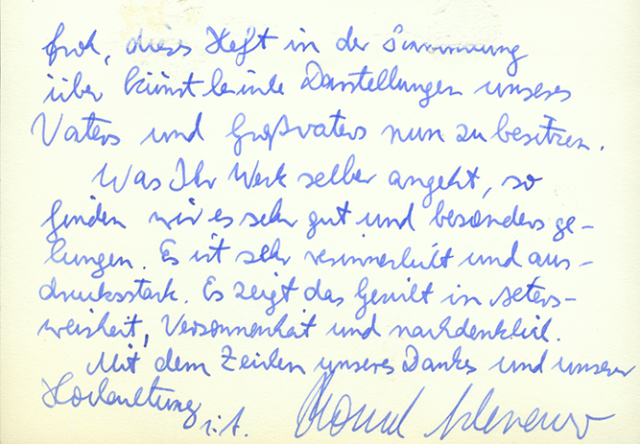 froh, dieses Heft in der Sammlung
über künstlerische Darstellungen unseres
Vaters und Großvaters nun zu besitzen.
Was Ihr Werk selber angeht, so
finden wir es sehr gut und besonders ge-
lungen. Es ist sehr verinnerlicht und aus-
drucksstark. Es zeigt das Gesicht in Alters-
weisheit, Versonnenheit und nachdenklich.
Mit dem Zeichen unseres Dankes und unserer
Hochachtung